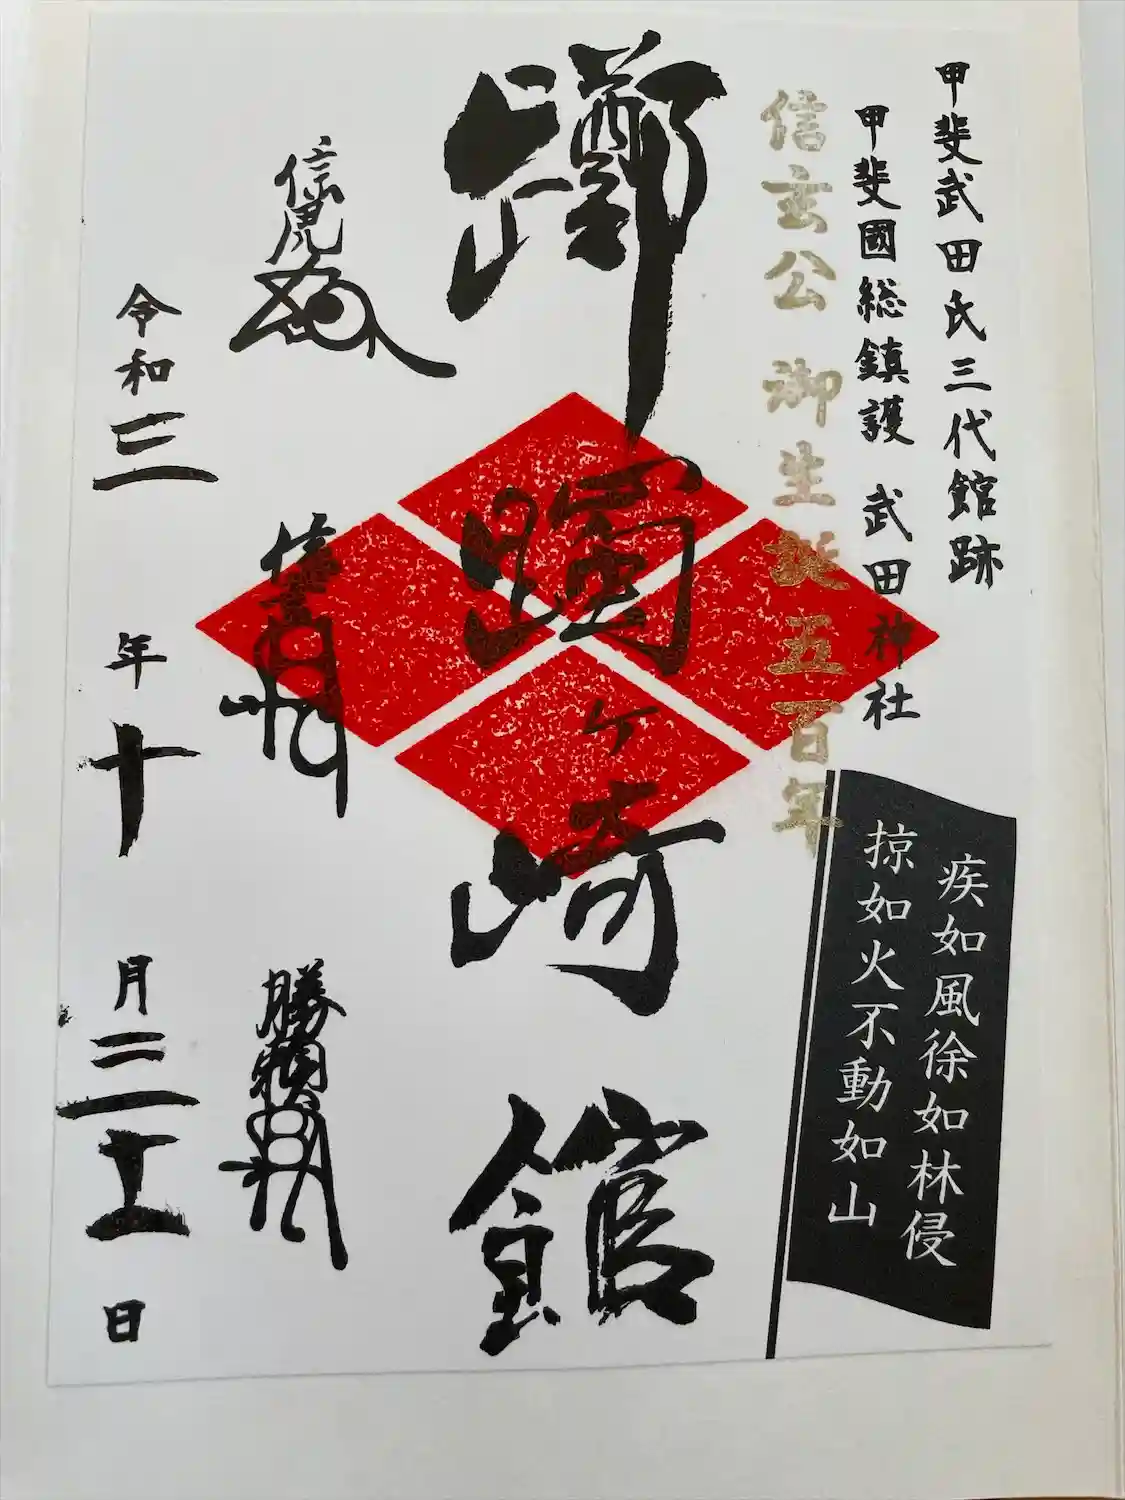 甲斐武田氏三代館跡
甲斐國総鎮護 武田神社
信玄公 御生誕五百年
疾如風徐如林侵
掠如火不動如山
躑躅ヶ崎館
信虎
信玄
勝頼
令和三年十月二十二日